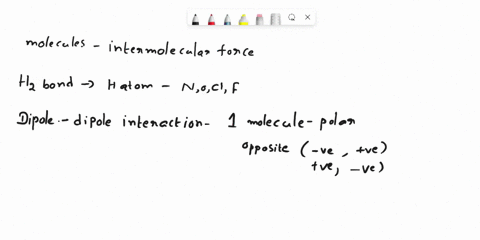 molecules - intermolecular force
H2 bond → H atom - N,O,Cl,F
Dipole - dipole interaction - 1 molecule - polar
opposite (-ve, +ve)
+ve, -ve)